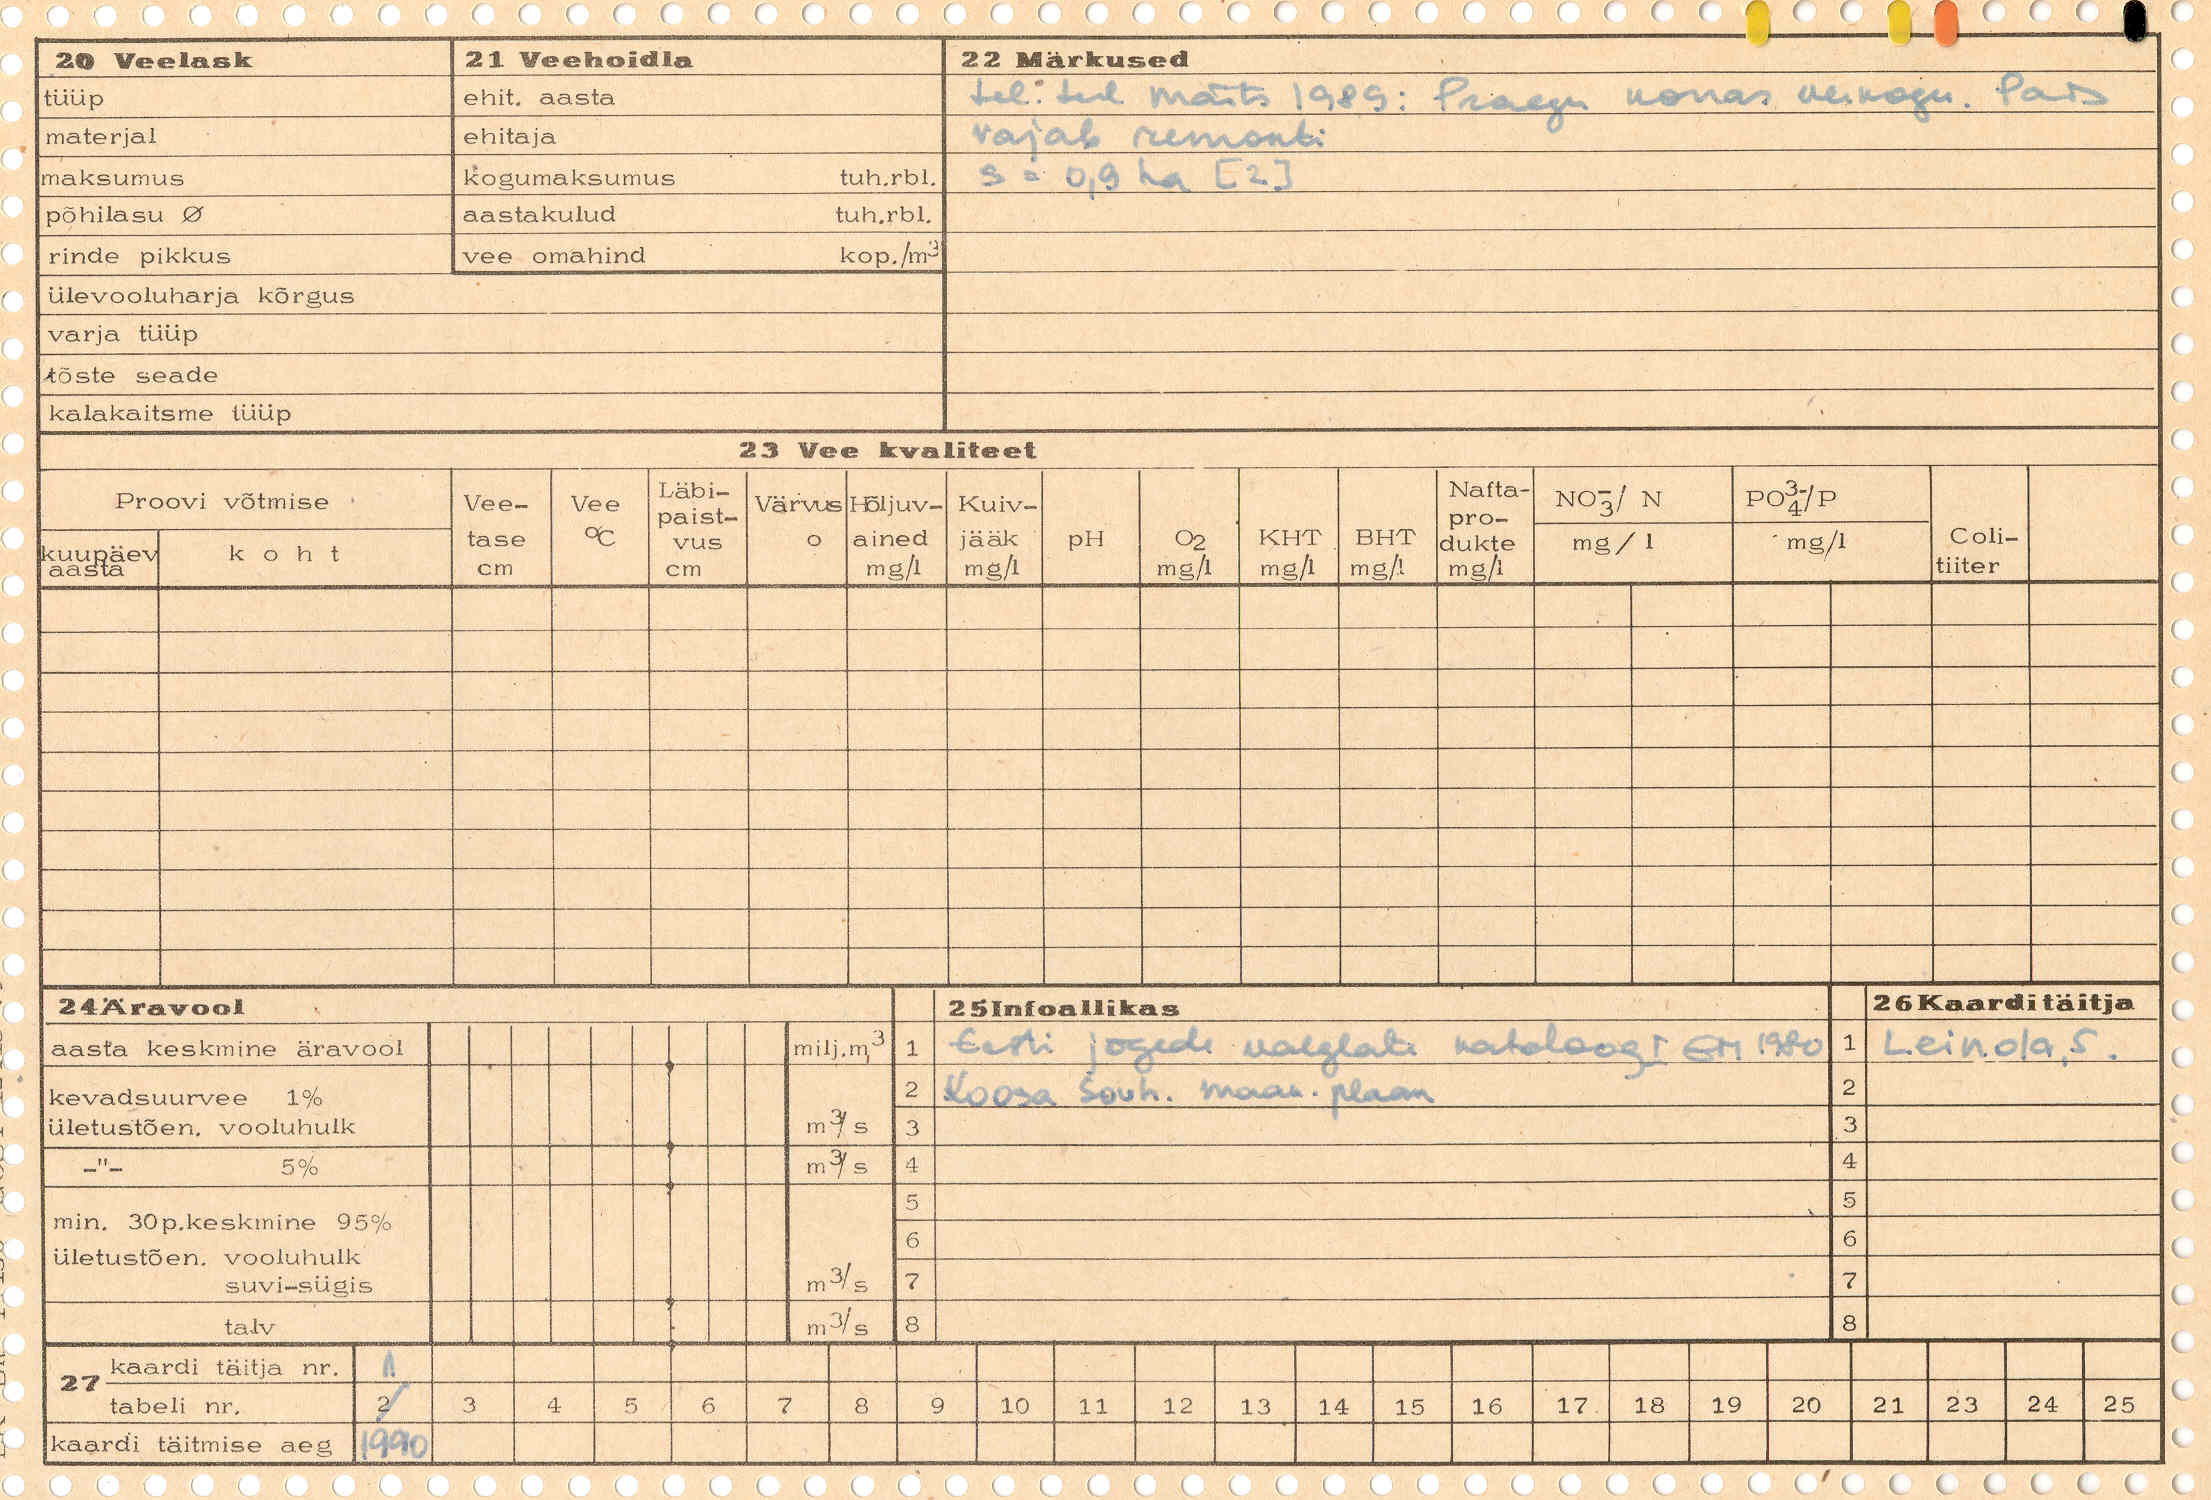 20 Veelask
tüüp
materjal
maksumus
põhilasu Ø
rinde pikkus
ülevooluharja kõrgus
varja tüüp
tõste seade
kalakaitsme tüüp
21 Veehoidla
ehit. aasta
ehitaja
kogumaksumus tuh.rbl.
aastakulud tuh.rbl.
vee omahind kop./m³
22 Märkused
märts 1989: Praegu korras veekogu. Pais
vajab remonti
S = 0,9 ha [2]
23 Vee kvaliteet
Proovi võtmise
kuupäev aasta
koht
Vee-tase cm
Vee °C
Läbi-paist-vus cm
Värvus o
Hõljuv-ained mg/l
Kuiv-jääk mg/l
pH
O2 mg/l
KHT mg/l
BHT mg/l
Nafta-pro-dukte mg/l
NO3-/ N mg/l
PO4 3-/P mg/l
Coli-tiiter
24 Äravool
aasta keskmine äravool milj.m,³
kevadsuurvee 1%
ületustõen. vooluhulk m³/s
-"- 5% m³/s
min. 30p.keskmine 95%
ületustõen. vooluhulk
suvi-sügis m³/s
talv m³/s
25 Infoallikas
1 Eesti jõgede valglate kataloog I EM 1980
2 Koosa Sovh. maak. plaan
3
4
5
6
7
8
26 Kaarditäitja
1 Leinola, S.
2
3
4
5
6
7
8
27 kaardi täitja nr. 1
tabeli nr. 2 3 4 5 6 7 8 9 10 11 12 13 14 15 16 17 18 19 20 21 23 24 25
kaardi täitmise aeg 1990